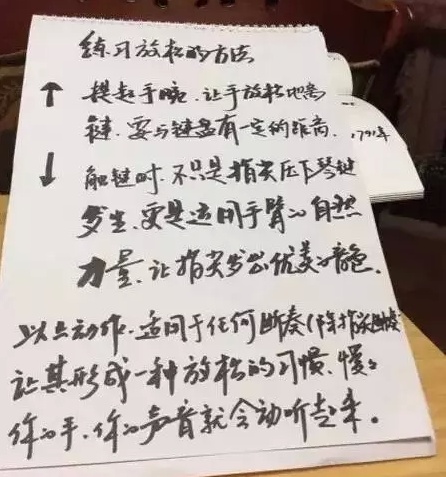 练习放松的方法
↑ 提起手腕.让手放松地离
键.要与键盘有一定的距离.
↓ 触键时.不只是指尖压下琴键
发生.更是运用手臂的自然
力量.让指尖发出优美的音色.
以上动作.适用于任何断奏(除指尖断奏
让其形成一种放松的习惯.慢慢
你的手.你的声音就会动听起来。